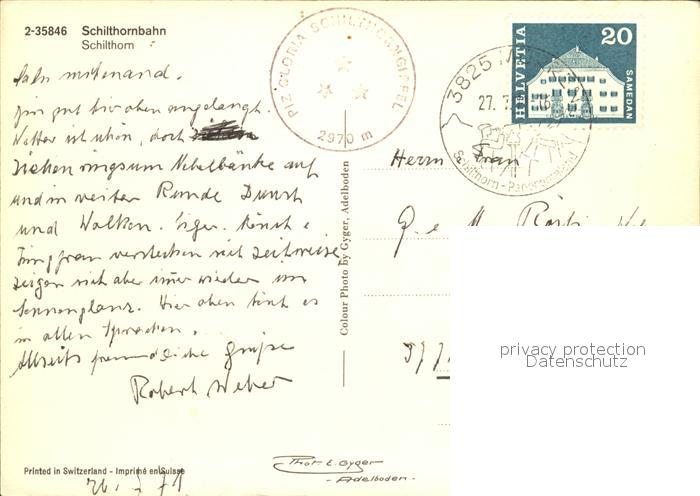 2-35846 Schilthornbahn
Schilthorn
PIZ GLORIA SCHILTHORNGIPFEL
2970 m
3825
27.
Schilthorn - Panoramaland
HELVETIA
20
SAMEDAN
gut hier oben angelangt.
Wetter ist schön, doch
ziehen ringsum Nebelbänke auf
und in weiter Runde Dunst
und Wolken. Eiger, Mönch &
Jungfrau verstecken sich zeitweise
zeigen sich aber immer wieder im
Sonnenglanz. Hier oben tönt es
in allen Sprachen.
Allseits freundliche Grüsse
Robert Weber
Colour Photo by Gyger, Adelboden
Herrn Frau
privacy protection
Datenschutz
Printed in Switzerland - Imprimé en Suisse
Phot. E. Gyger
- Adelboden -